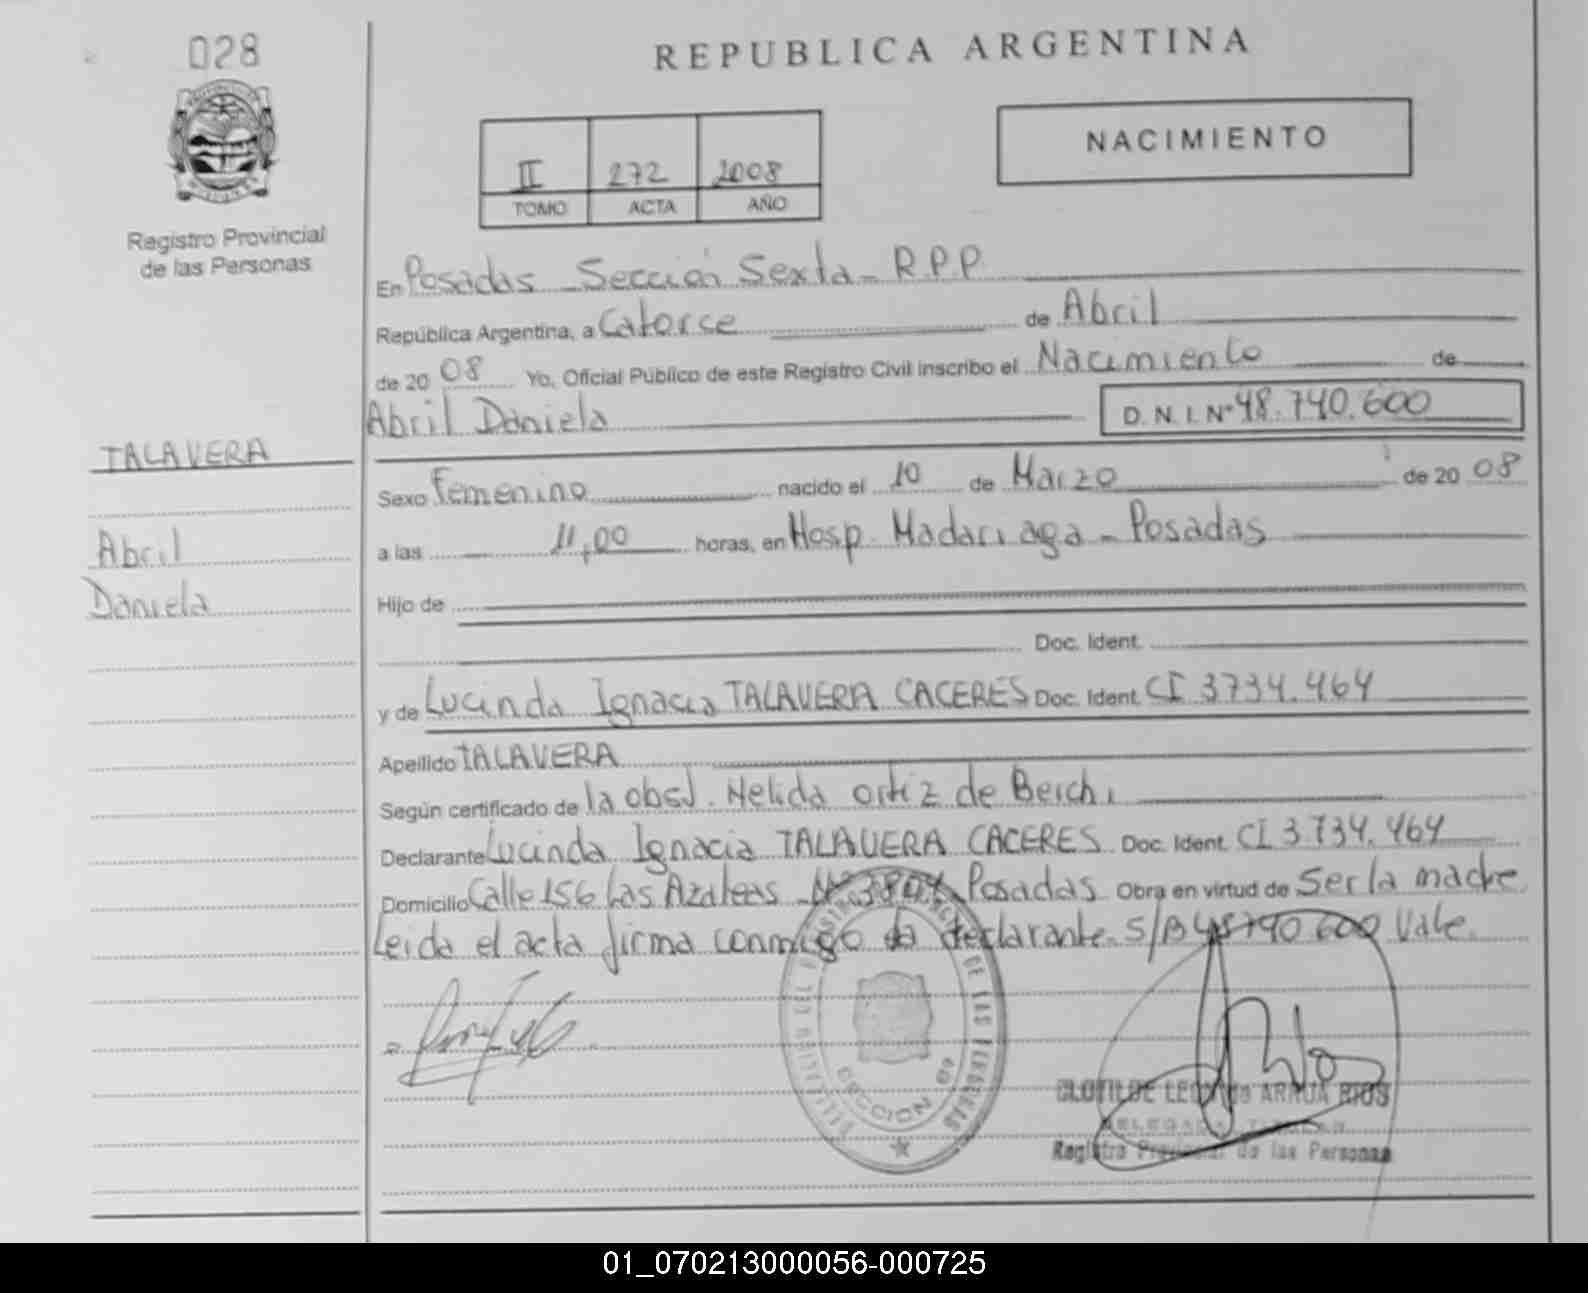 028
REPUBLICA ARGENTINA
NACIMIENTO
II 272 2008
TOMO ACTA AÑO
Registro Provincial
de las Personas
En Posadas - Sección Sexta - R.P.P.
República Argentina, a Catorce de Abril
de 20 08 Yo, Oficial Público de este Registro Civil inscribo el Nacimiento de
Abril Daniela D.N.I.Nº 48.740.600
TALAVERA
Sexo Femenino nacido el 10 de Marzo de 20 08
Abril
a las 11,00 horas, en Hosp. Madariaga - Posadas
Daniela
Hijo de
Doc. Ident.
y de Lucinda Ignacia TALAVERA CACERES Doc. Ident. CI 3734.464
Apellido TALAVERA
Según certificado de la obst. Nelida Ortiz de Berchi
Declarante Lucinda Ignacia TALAVERA CACERES Doc. Ident. CI 3.734.464
Domicilio Calle 156 Las Azaleas Nº 3804 Posadas Obra en virtud de Ser la madre
Leida el acta firma conmigo la declarante. S/B 48740600 Vale.
DE LAS PERSONAS
SECCION 6ª
CLOTILDE ARRUA RIOS
DELEGADA
Registro Provincial de las Personas
01_070213000056-000725